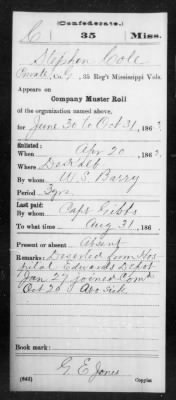 (Confederate.)
C 35 Miss.
Stephen Cole
Private, Co. G, 35 Reg't Mississippi Vols.
Appears on
Company Muster Roll
of the organization named above,
for June 30 to Oct 31, 186
Enlisted:
When Apr 20, 186
Where
By whom W. S. Barry
Period 3 yrs
Last paid:
By whom Capt Gibbs
To what time Aug 31, 186
Present or absent Absent
Remarks: Deserted from Hos
pital Edwards Depot
Jan 27 joined Com'd
Oct 26 Abs Sick
Book mark:
G. E. Jones
(642) Copyist.